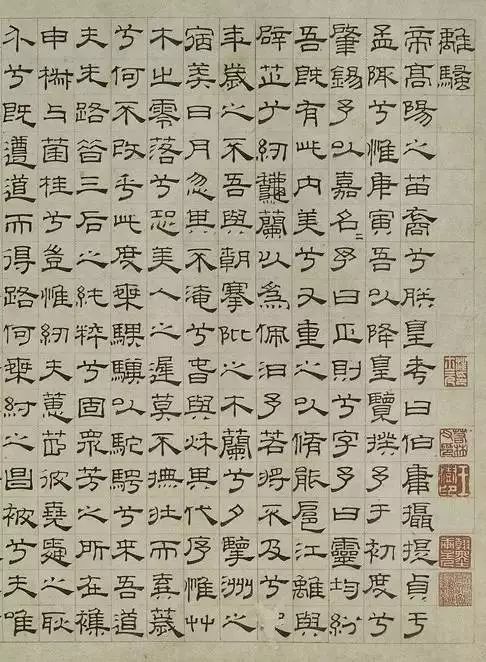 離騷
帝高陽之苗裔兮朕皇考曰伯庸攝提貞于
孟陬兮惟庚寅吾以降皇覽揆予于初度兮
肇錫予以嘉名〻予曰正則兮字予曰靈均紛
吾既有此內美兮又重之以脩能扈江離與
辟芷兮紉龝蘭以為佩汨予若將不及兮
年歲之不吾與朝搴阰之木蘭兮夕擥洲之
宿莽日月忽其不淹兮春與秌其代序惟艸
木之零落兮恐美人之遲莫不撫壯而棄穢
兮何不改乎此度椉騏驥以駝騁兮來吾道
夫先路昝三后之純粹兮固眾芳之所在襍
申椒与菌桂兮豈惟紉夫蕙茝彼堯舜之耿
介兮既遵道而得路何桀紂之昌被兮夫唯